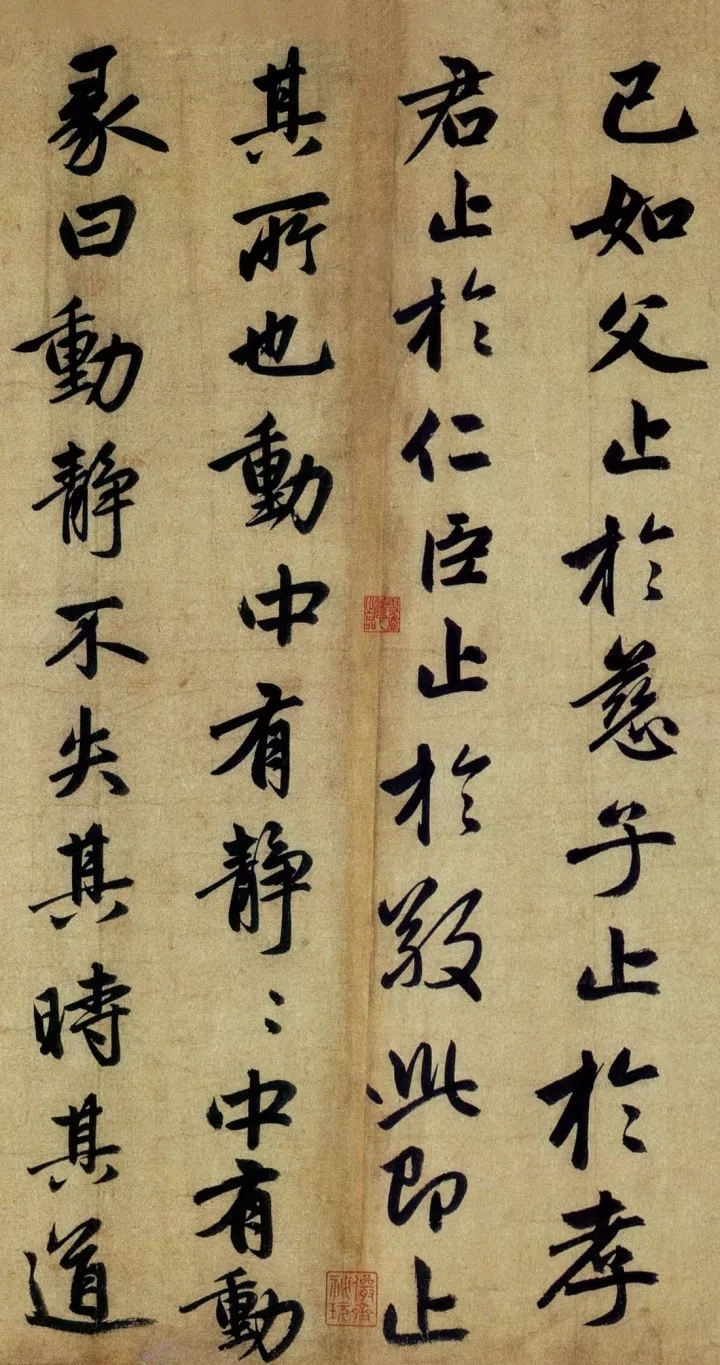 已如父止於慈子止於孝
君止於仁臣止於敬此即止
其所也動中有靜〻中有動
彖曰動靜不失其時其道